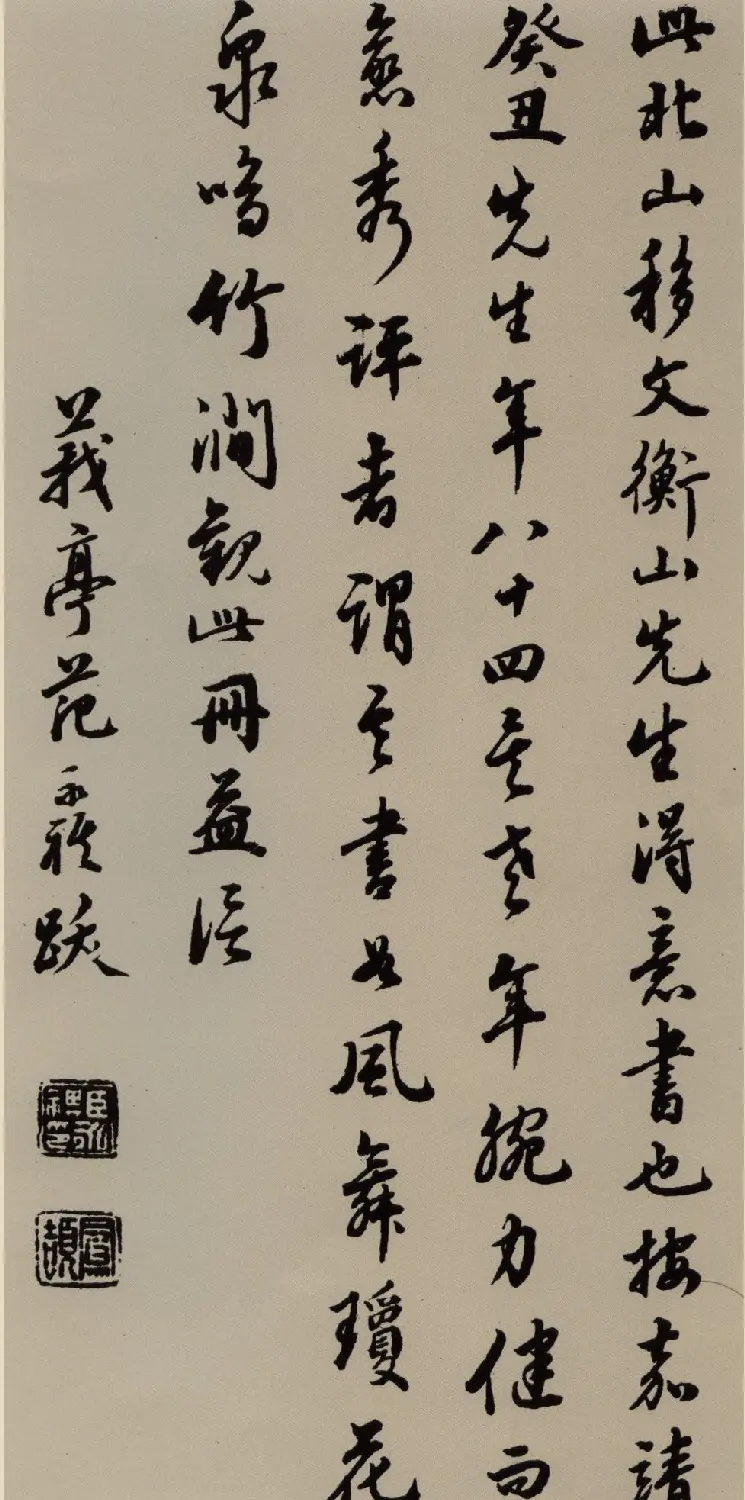 此北山移文衡山先生得意書也按嘉靖
癸丑先生年八十四矣老年腕力健而
愈秀評者謂其書如風舞瓊花
泉鳴竹澗觀此冊益信
莪亭范永祺跋
臣永祺印
鳳頡